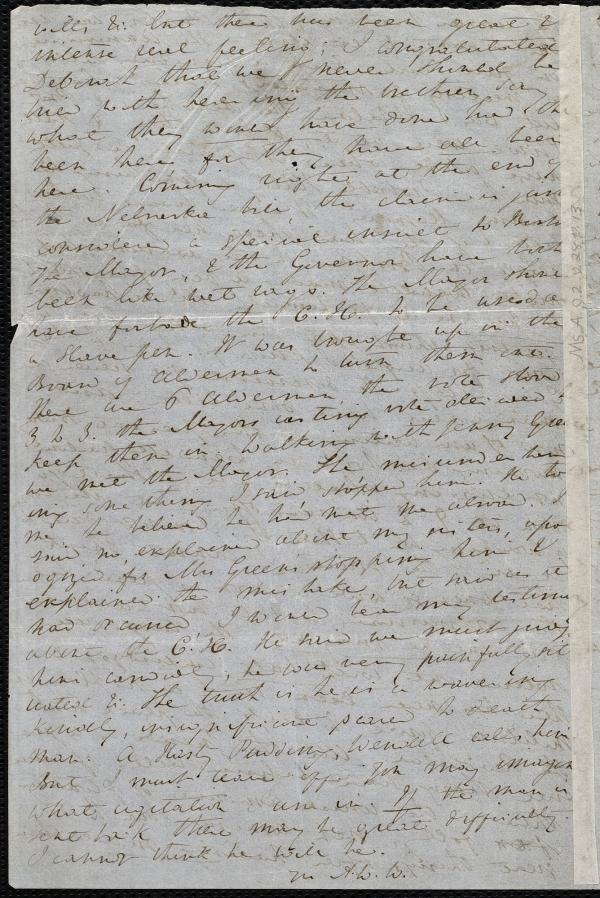 mills &c. but there has been great &
intense real feeling; I congratulated
Deborah that we never should be
tried with hearing the brethren say
what they would have done had they
been here for they have all been
here. Coming right at the end of
the Nebraska bill, the claim is just
considered a special insult to Boston
The Mayor, & the Governor have both
been like wet rags. The Mayor should
have forbade the C. H. to be used as
a slave pen. It was brought up in the
Board of Aldermen to turn them out.
There are 6 Aldermen, the vote stood
3 to 3. the Mayors casting vote decided to
keep them in. Walking with Jenny Green
we met the Mayor. She misunderstanding
something I said stopped him. He told
me he believed he had met me abroad. I
said no, explained about my sisters, apologized
for Mrs Green's stopping him &
explained the mistake, but said as it
had occurred I would bear my testimony
about the C. H. He said we must judge
him candidly, he was very painfully situated
&c. The truth is he is a wavering
kindly, insignificant scared to death
man. A Hasty Pudding, Wendell calls him.
But I must leave off. You may imagine
what agitation are in. If the man is
sent back there may be great difficulty.
I cannot think he will be.
A. W. W.